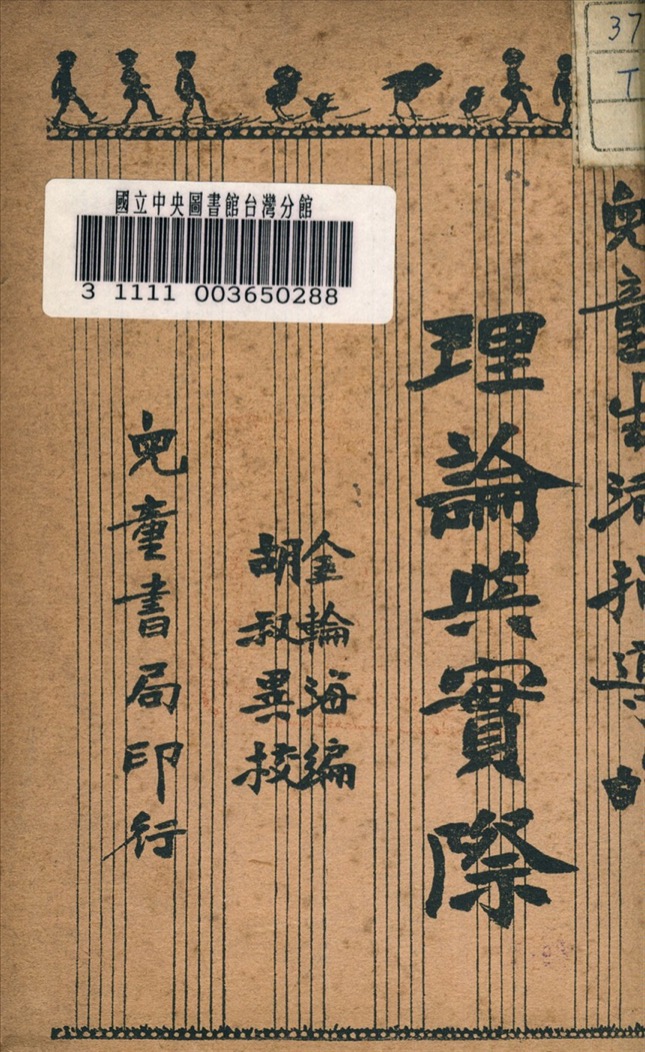 兒童生活指導的
理論與實際
金輪海編
胡叔異校
兒童書局印行
國立中央圖書館台灣分館
3 1111 003650288
37
T